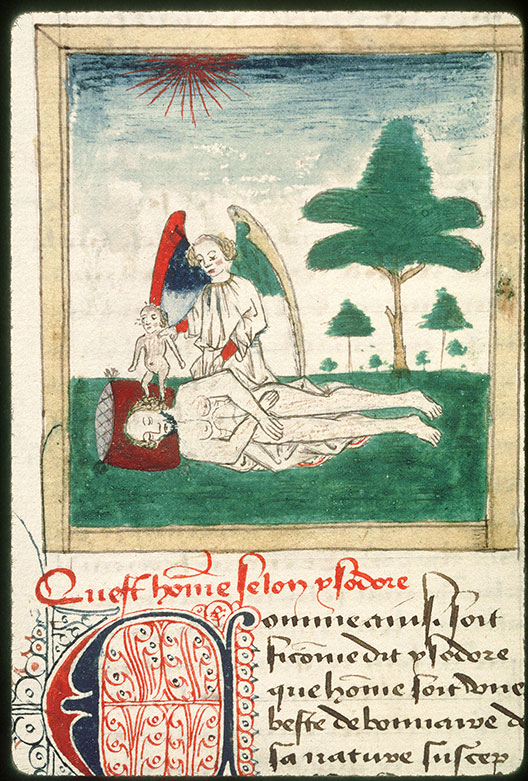 Quest hom̄e selon ysodore
Comme ainsi soit
sicōme dit ysodore
que hōme soit vne
beste debonnaire d
sa nature suscep